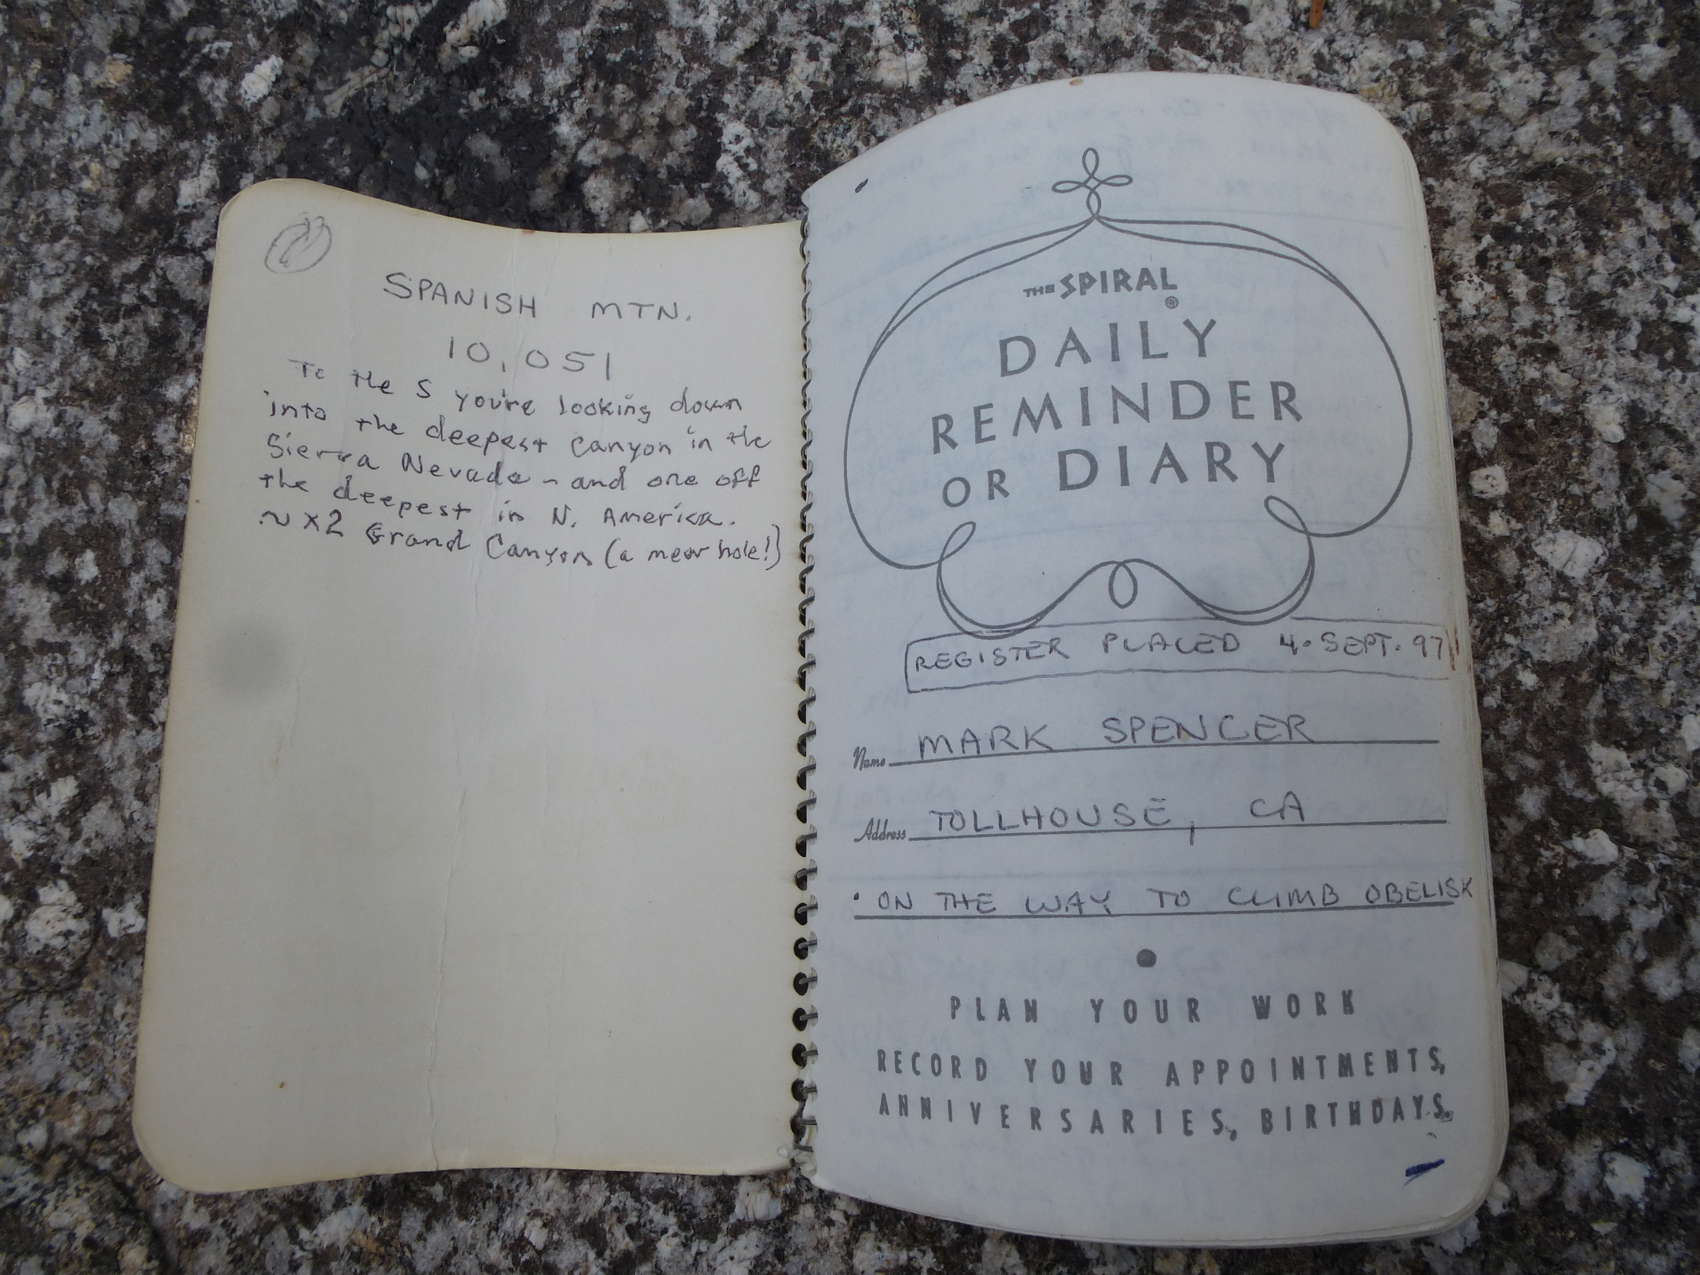 SPANISH MTN.
10,051
To the S you're looking down
into the deepest canyon in the
Sierra Nevada - and one off
the deepest in N. America.
~ x2 Grand Canyon (a meer hole!)
THE SPIRAL ®
DAILY
REMINDER
OR DIARY
REGISTER PLACED 4. SEPT. 97
Name MARK SPENCER
Address TOLLHOUSE, CA
• ON THE WAY TO CLIMB OBELISK
PLAN YOUR WORK
RECORD YOUR APPOINTMENTS,
ANNIVERSARIES, BIRTHDAYS.